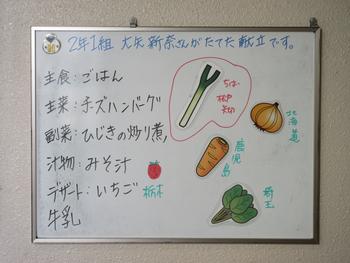 2年1組 大矢新奈さんがたてた献立です。
主食:ごはん
主菜:チーズハンバーグ
副菜:ひじきの炒り煮
汁物:みそ汁
デザート:いちご
牛乳
栃木
ちば
松戸
北海道
鹿児島
埼玉